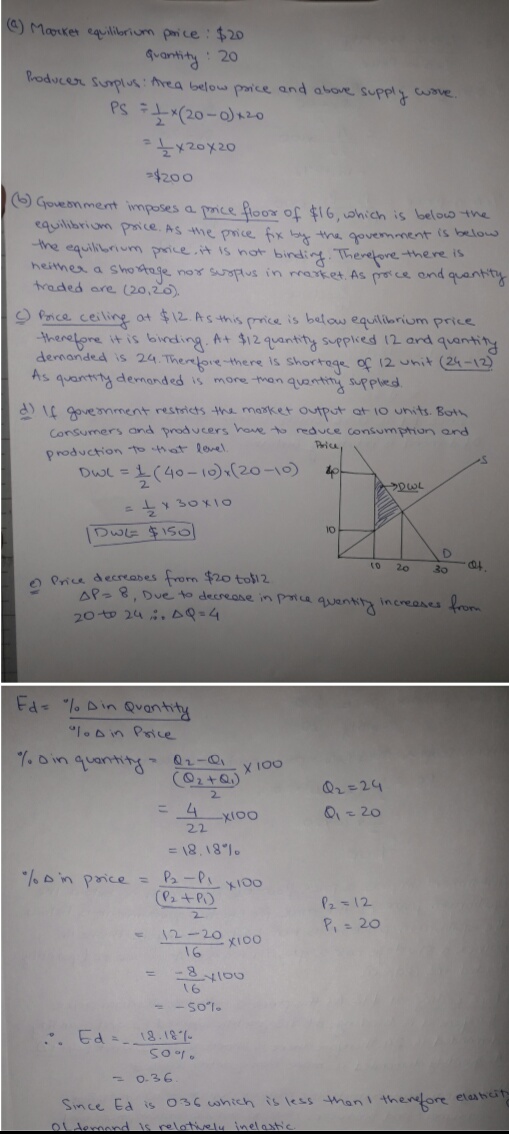 (a) Market equilibrium price : $20
Quantity : 20
Producer Surplus : Area below price and above supply curve.
PS = 1/2 × (20-0) × 20
= 1/2 × 20 × 20
= $200
(b) Government imposes a price floor of $16, which is below the
equilibrium price. As the price fix by the government is below
the equilibrium price, it is not binding. Therefore there is
neither a shortage nor surplus in market. As price and quantity
traded are (20,20).
c) Price ceiling at $12. As this price is below equilibrium price
therefore it is binding. At $12 quantity supplied 12 and quantity
demanded is 24. Therefore there is shortage of 12 unit (24-12)
As quantity demanded is more than quantity supplied.
d) If government restricts the market output at 10 units. Both
consumers and producers have to reduce consumption and
production to that level.
DWL = 1/2 (40-10) × (20-10)
= 1/2 × 30 × 10
DWL = $150
Price
S
40
DWL
10
D
10 20 30 Qt.
e) Price decreases from $20 to $12
ΔP = 8, Due to decrease in price quantity increases from
20 to 24 ∴ ΔQ = 4
Ed = % Δ in Quantity / % Δ in Price
% Δ in quantity = (Q2 - Q1) / ((Q2 + Q1) / 2) × 100
Q2 = 24
= 4/22 × 100
Q1 = 20
= 18.18%
% Δ in price = (P2 - P1) / ((P2 + P1) / 2) × 100
P2 = 12
= (12 - 20) / 16 × 100
P1 = 20
= -8/16 × 100
= -50%
∴ Ed = - 18.18% / 50%
= 0.36
Since Ed is 036 which is less than 1 therefore elasticity
of demand is relatively inelastic